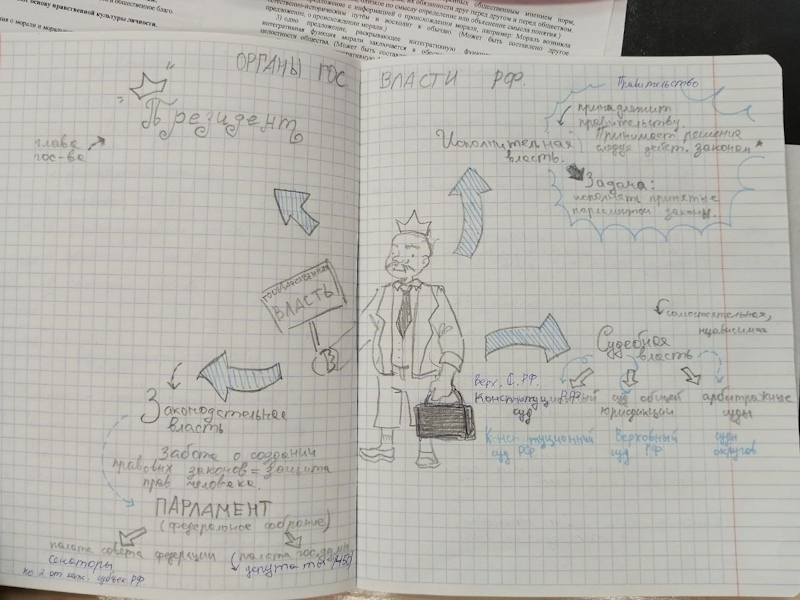 общественное благо.
основу нравственной культуры личности.
ОРГАНЫ ГОС ВЛАСТИ РФ.
Президент
глава
гос-ва
Правительство
принадлежит
правительству.
Принимает решения
Исполнительная
власть.
Задача:
исполнять принятые
парламентом законы.
ГОСУДАРСТВЕННАЯ
ВЛАСТЬ
самостоятельная,
независимая
Судебная
власть
Верх. С. РФ.
Конституционный РФ
суд
суд общей
юрисдикции
арбитражные
суды
Конституционный
суд РФ
Верховный
суд РФ
суды
округов
Законодательная
власть
Забота о создании
правовых законов = защита
прав человека.
ПАРЛАМЕНТ
(федеральное собрание)
палата совета федерации
сенаторы
по 2 от субъек. РФ
(палата гос.думы
депутаты (450)